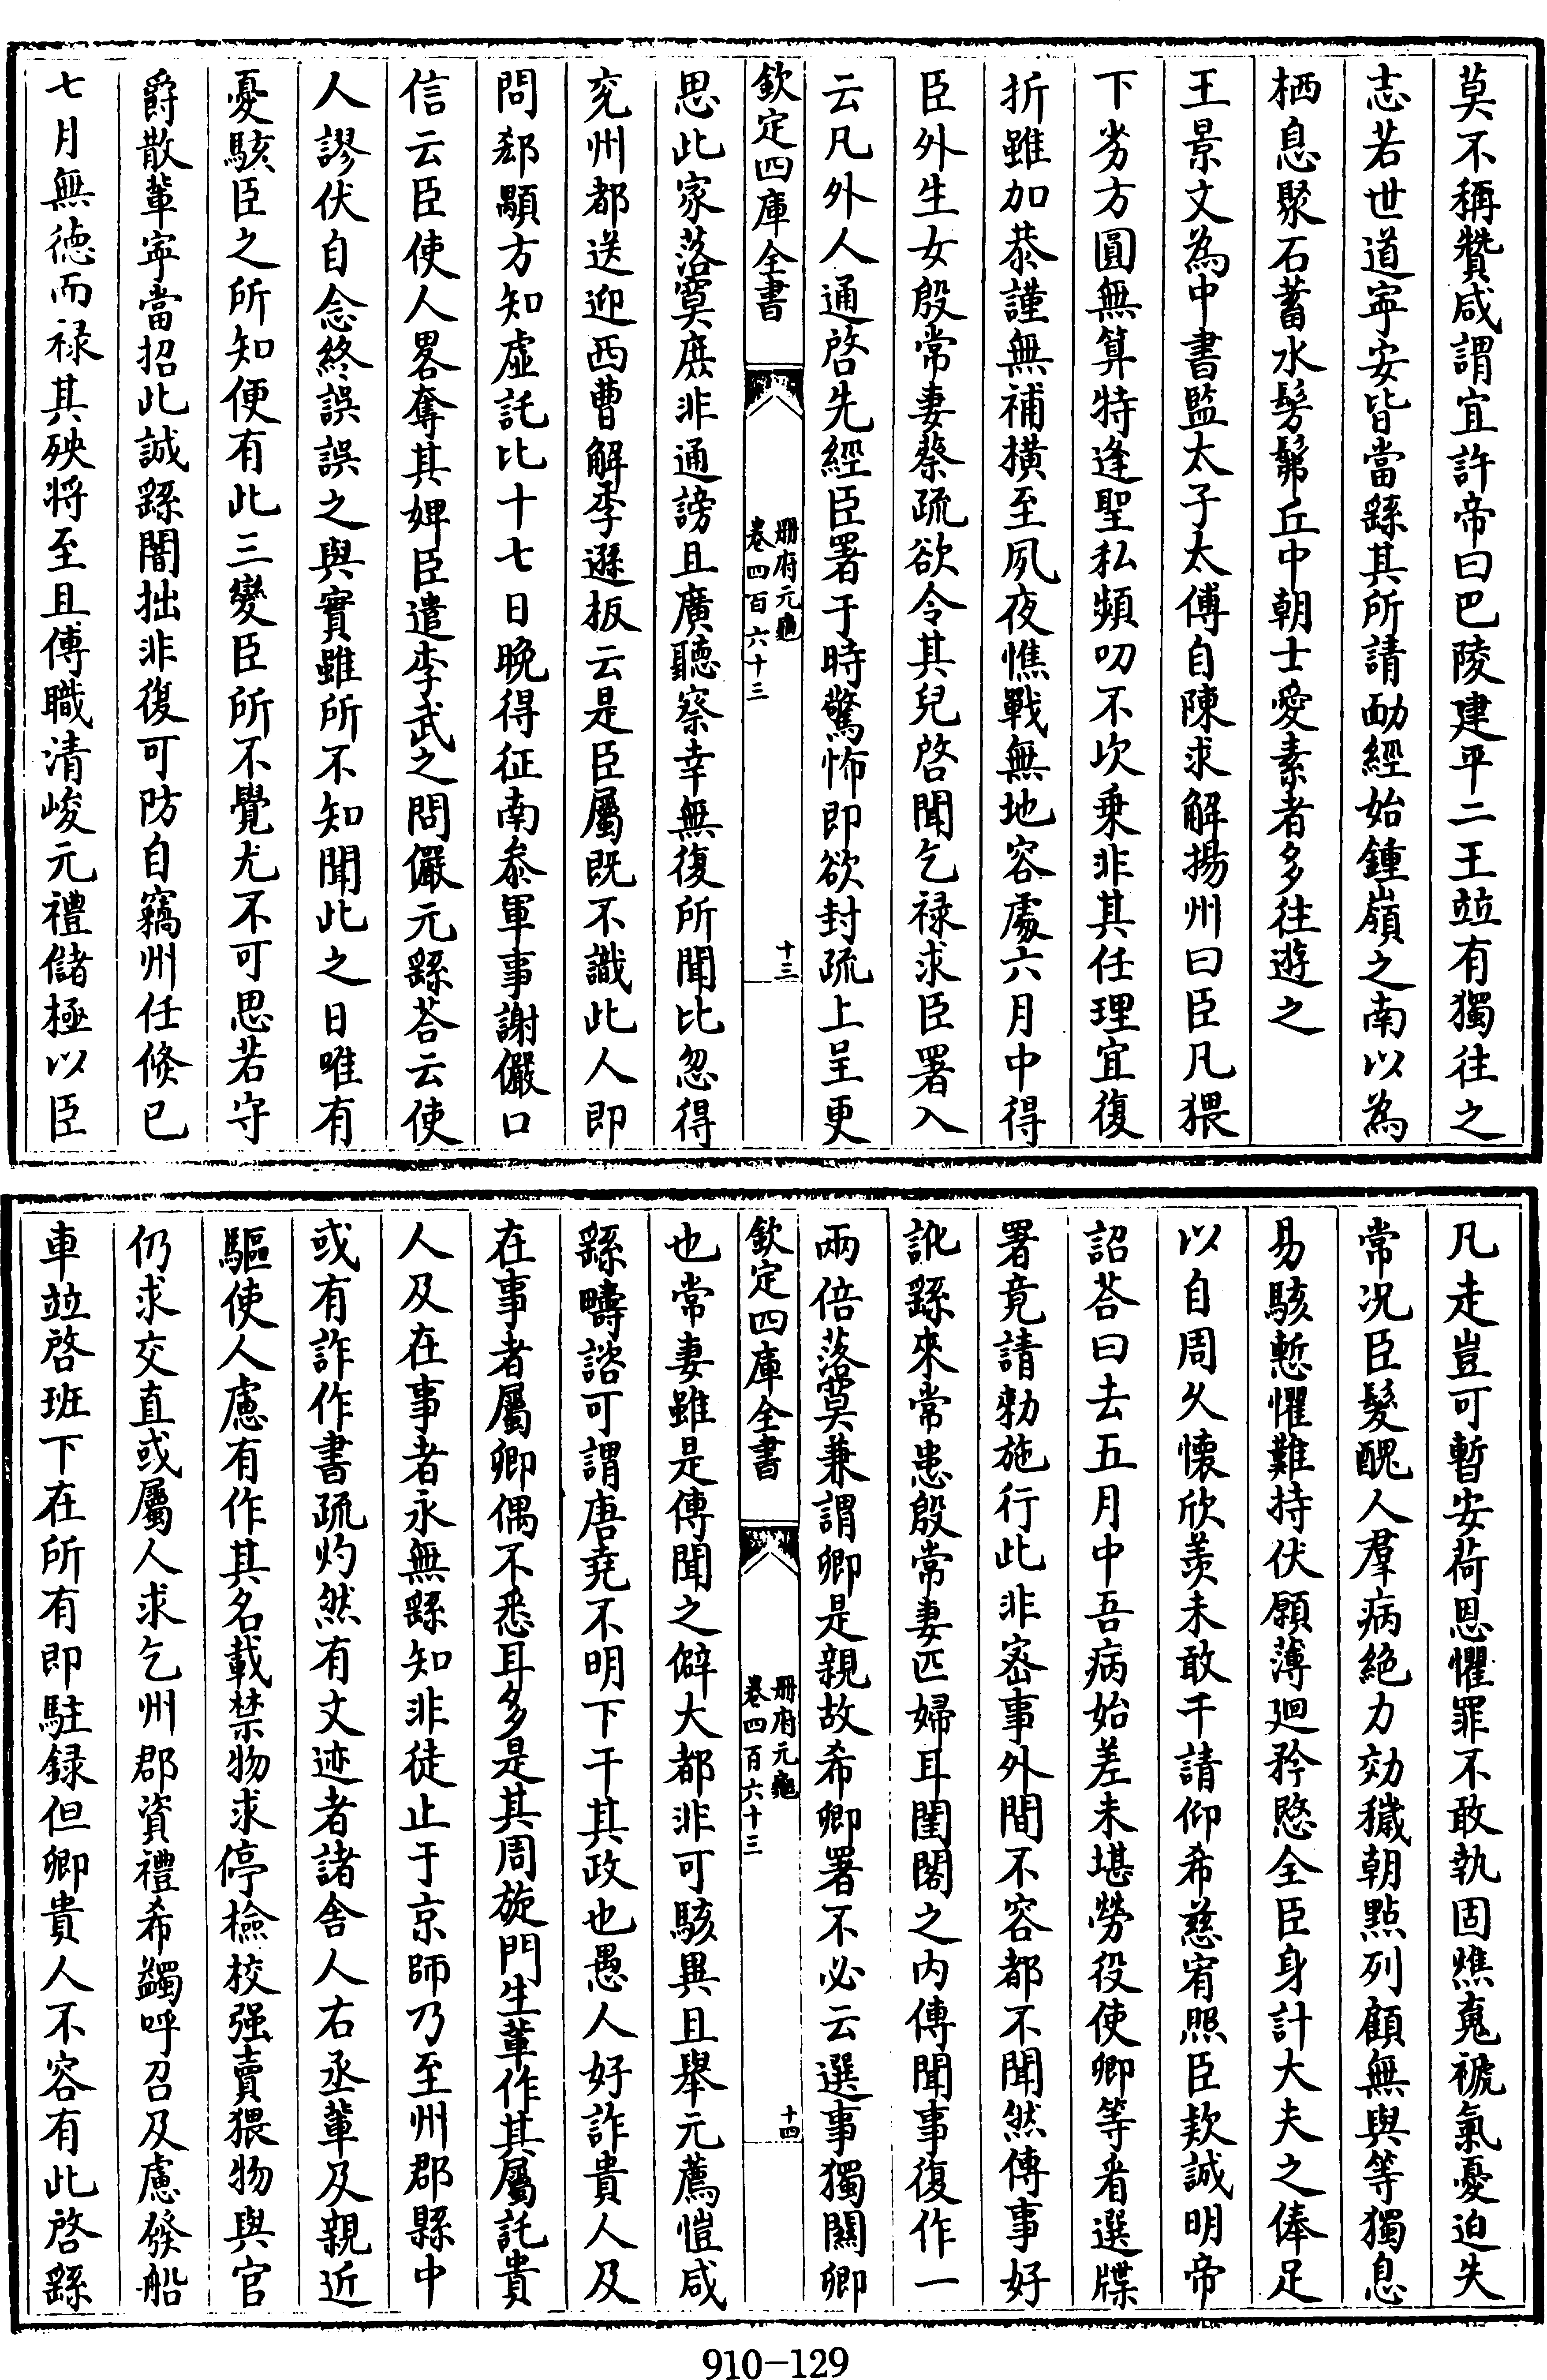 莫不稱贊咸謂宜許帝曰巴陵建平二王竝有獨往之
志若世道寧安皆當繇其所請勔經始鍾嶺之南以為
栖息聚石蓄水髣髴丘中朝士愛素者多往遊之
王景文為中書監太子太傅自陳求解揚州曰臣凡猥
下劣方圓無算特逢聖私頻叨不次乗非其任理宜復
折雖加恭謹無補橫至夙夜憔戰無地容處六月中得
臣外生女殷常妻蔡疏欲令其兒啓聞乞禄求臣署入
云凡外人通啓先經臣署于時驚怖即欲封疏上呈更
欽定四庫全書
冊府元龜
卷四百六十三
十三
思此家落寞庶非通謗且廣聽察幸無復所聞比忽得
兖州都送迎西曹解李遜板云是臣屬既不識此人即
問郄顒方知虛託比十七日晚得征南叅軍事謝儼口
信云臣使人畧奪其婢臣遣李武之問儼元繇荅云使
人謬伏自念終誤誤之與實雖所不知聞此之日唯有
憂駭臣之所知便有此三變臣所不覺尤不可思若守
爵散輩寧當招此誠繇闇拙非復可防自竊州任倐已
七月無德而禄其殃将至且傅職清峻元禮儲極以臣
凡走豈可暫安荷恩懼罪不敢執固燋䰟褫氣憂迫失
常况臣髮醜人羣病絶力効穢朝點列顧無與等獨息
易駭慙懼難持伏願薄廻矜愍全臣身計大夫之俸足
以自周久懐欣羡未敢干請仰希慈宥照臣欵誠明帝
詔荅曰去五月中吾病始差未堪勞役使卿等看選牒
署竟請勅施行此非宻事外間不容都不聞然傳事好
訛繇來常患殷常妻匹婦耳閨閤之内傳聞事復作一
兩倍落寞兼謂卿是親故希卿署不必云選事獨闗卿
欽定四庫全書
冊府元龜
卷四百六十三
十四
也常妻雖是傳聞之僻大都非可駭異且舉元薦愷咸
繇疇諮可謂唐堯不明下干其政也愚人好詐貴人及
在事者屬卿偶不悉耳多是其周旋門生輩作其屬託貴
人及在事者永無繇知非徒止于京師乃至州郡縣中
或有詐作書疏灼然有文迹者諸舍人右丞輩及親近
驅使人慮有作其名載禁物求停檢校强賣猥物與官
仍求交直或屬人求乞州郡資禮希蠲呼召及慮發船
車竝啓班下在所有即駐録但卿貴人不容有此啓繇
910-129